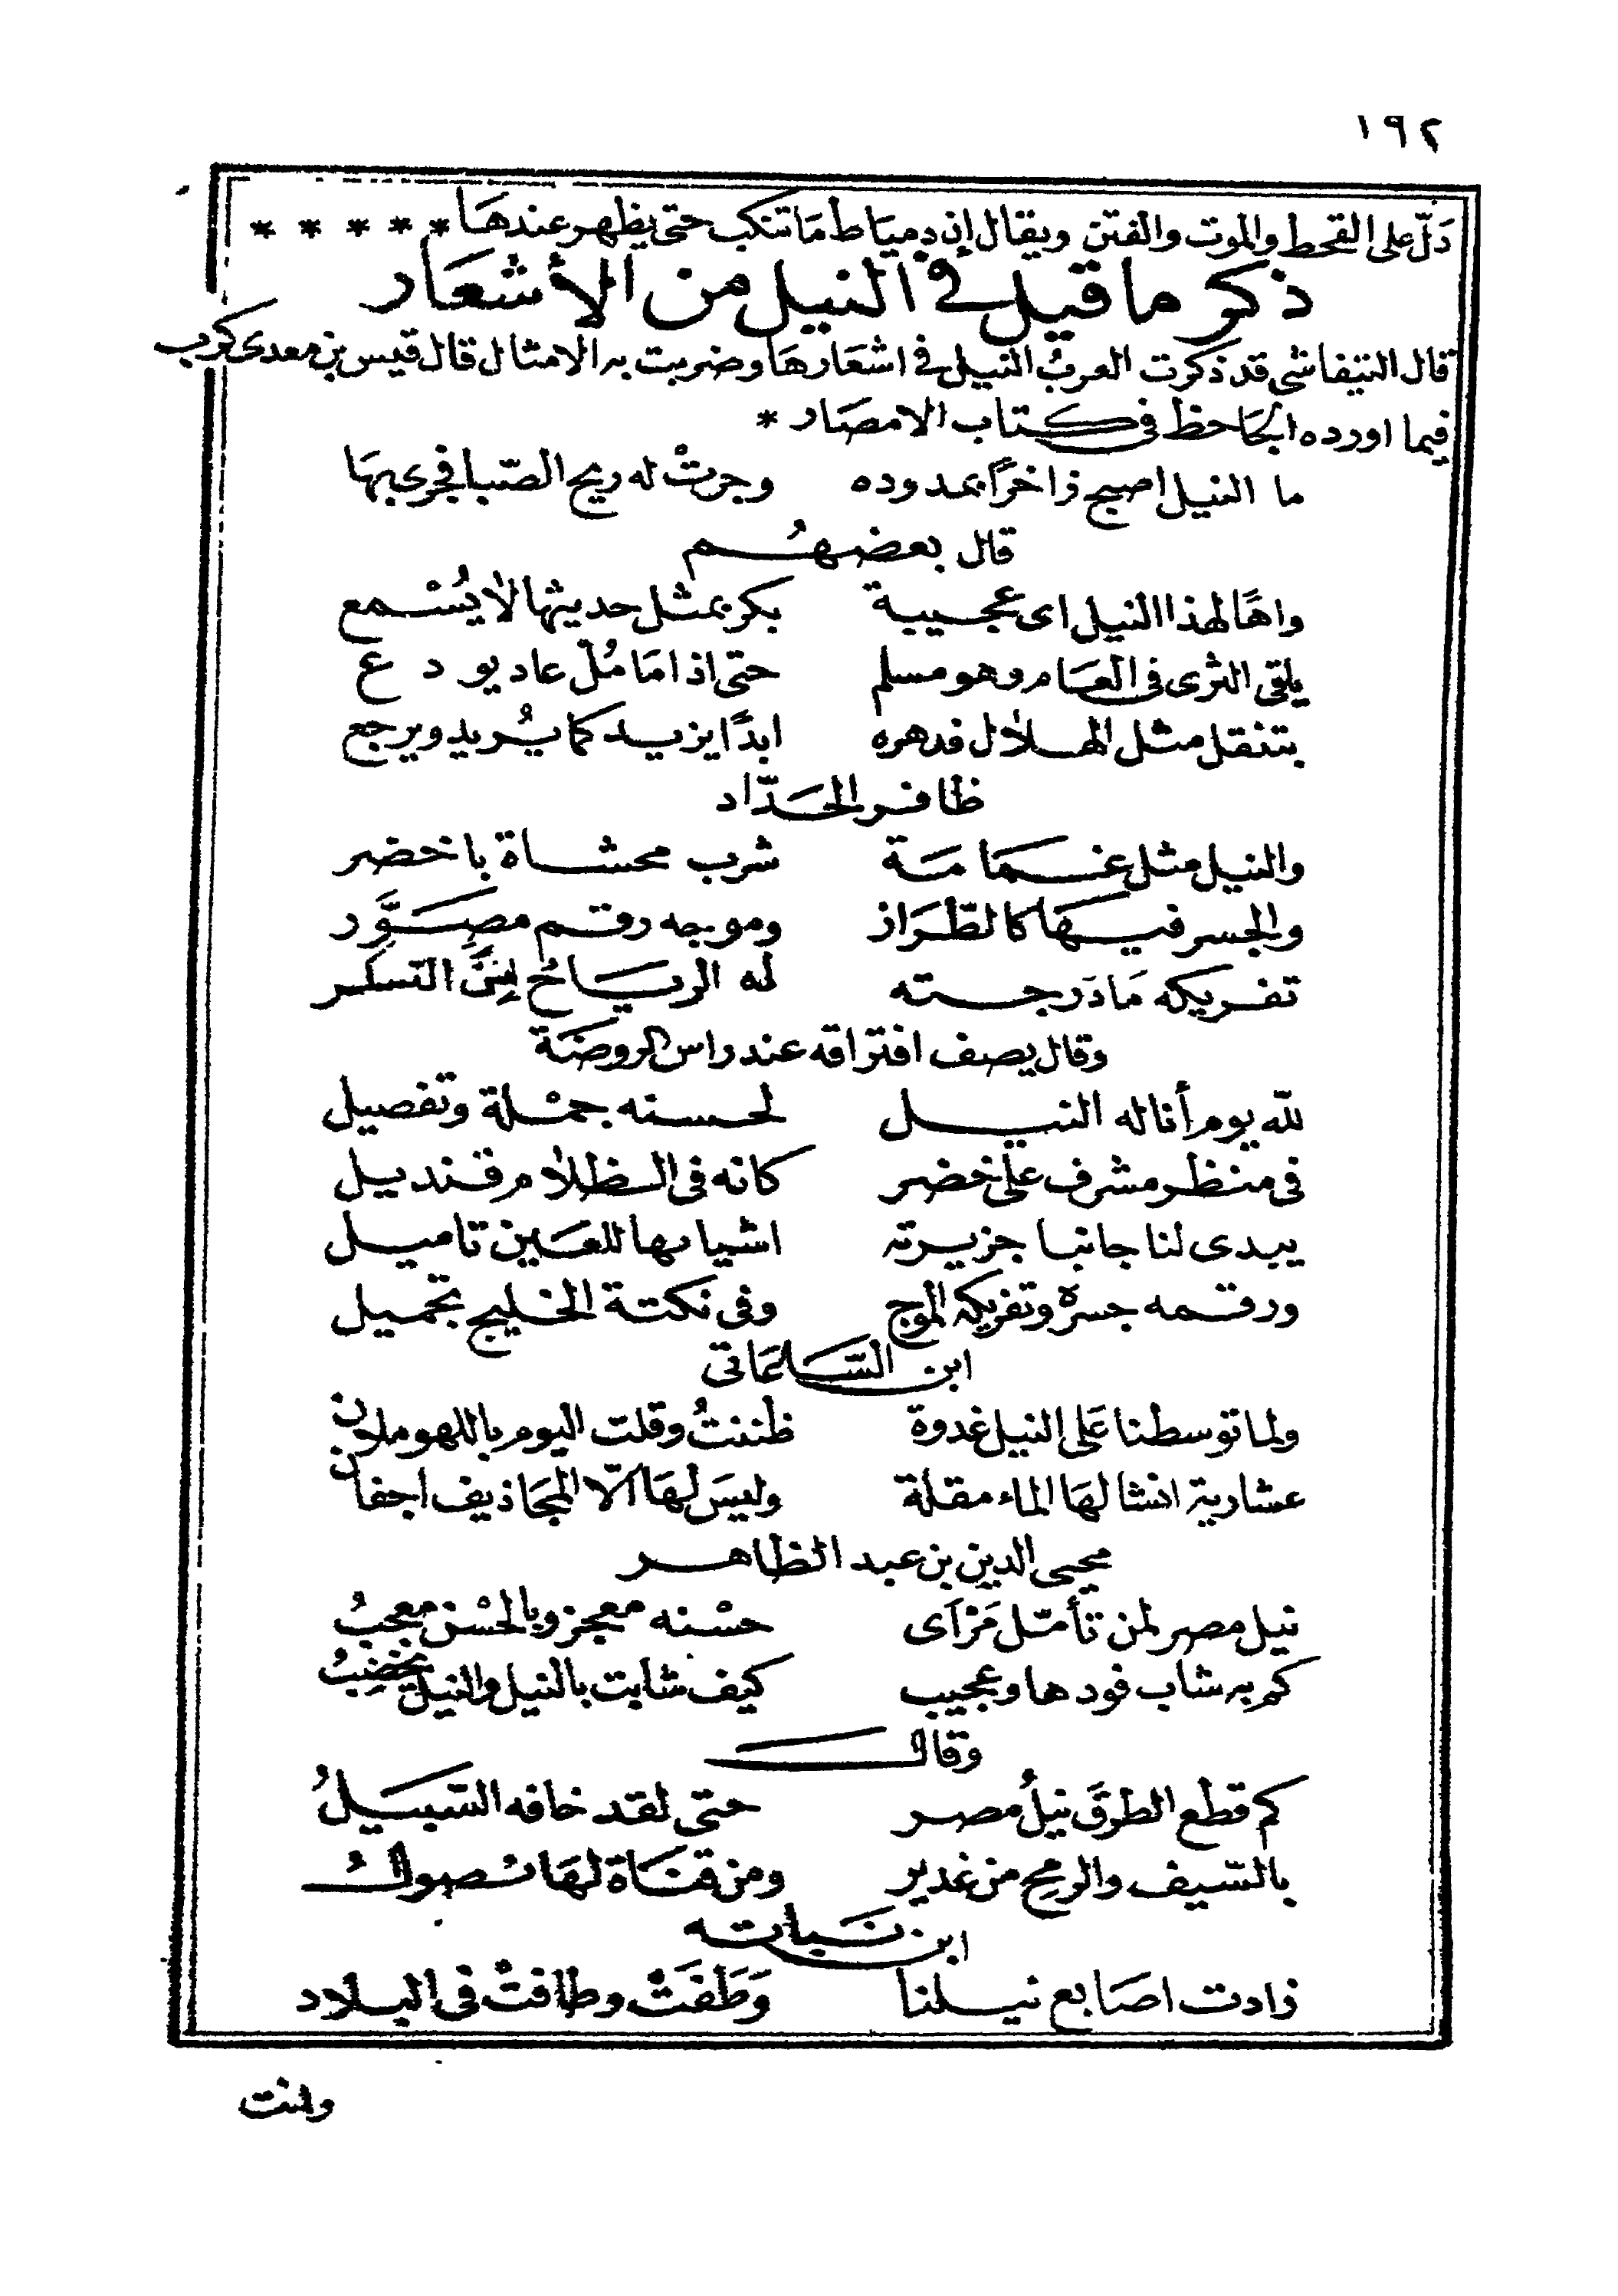 ١٩٢
دَلّ على القحط والموت والفتن ويقال إن دمياط مَا تنكب حتى يظهر عندهَا * * * * *
ذكر ما قيل في النيل من الأشعَار
قال التيفاشى قد ذكرت العربُ النيل في اشعَارهَا وضربت به الامثال قال قيس بن معدى كرب
فيما اورده الجَاحظ فى كتاب الامصَار *
ما النيل اصبح زاخرًا بمدوده وجرتْ له ريح الصّبا فجرى بهَا
قال بعضهُم
واهًا لهذا النيل اى عجيبة بكر بمثل حديثها لا يُسْمع
يلقى الثرى فى العَام وهو مسلم حتى اذا مَا مُلّ عاد يودع
يتنقل مثل الهلال فدهره ابدًا يزيد كما يُريد ويرجع
ظافر الحَدّاد
والنيل مثل غمَامَة شرب محشاة باخضر
والجسر فيهَا كالطّرَاز وموجه رقم مصَوَّر
تفريكه مَا دَرجته له الريَاحُ من التسكر
وقال يصف افتراقه عند راس الروضَة
لله يوم أناله النيل لحسنه جمْلة وتفصيل
فى منظر مشرف على خضر كانه فى الظلام قنديل
يبدى لنا جانبا جزيرته اشيا بها للعَين تاميل
ورقمه جسره وتفريكه الموج وفى نكتة الخليج تجميل
ابن السَّاعَاتى
ولما توسطنا عَلى النيل غدوة ظننتُ وقلت اليوم باللهو ملان
عشارية انشا لهَا الماء مقلة وليسَ لهَا الّا المجَاذيف اجفان
محيى الدين بن عبد الظاهر
نيل مصر لمن تأمّل مَرْآى حسْنه معجز وبالحُسْن معجبُ
كم به شاب فودها وعجيب كيف شابت بالنيل والنيل يخضِبُ
وقال
كم قطع الطرقَ نيلُ مصر حتى لقد خافه السّبيلُ
بالسّيف والرمح من غدير ومن قنَاة لهَا نصول
ابن نبَاته
زادت اصَابع نيلنا وَطَفَتْ وطافتْ فى البلاد